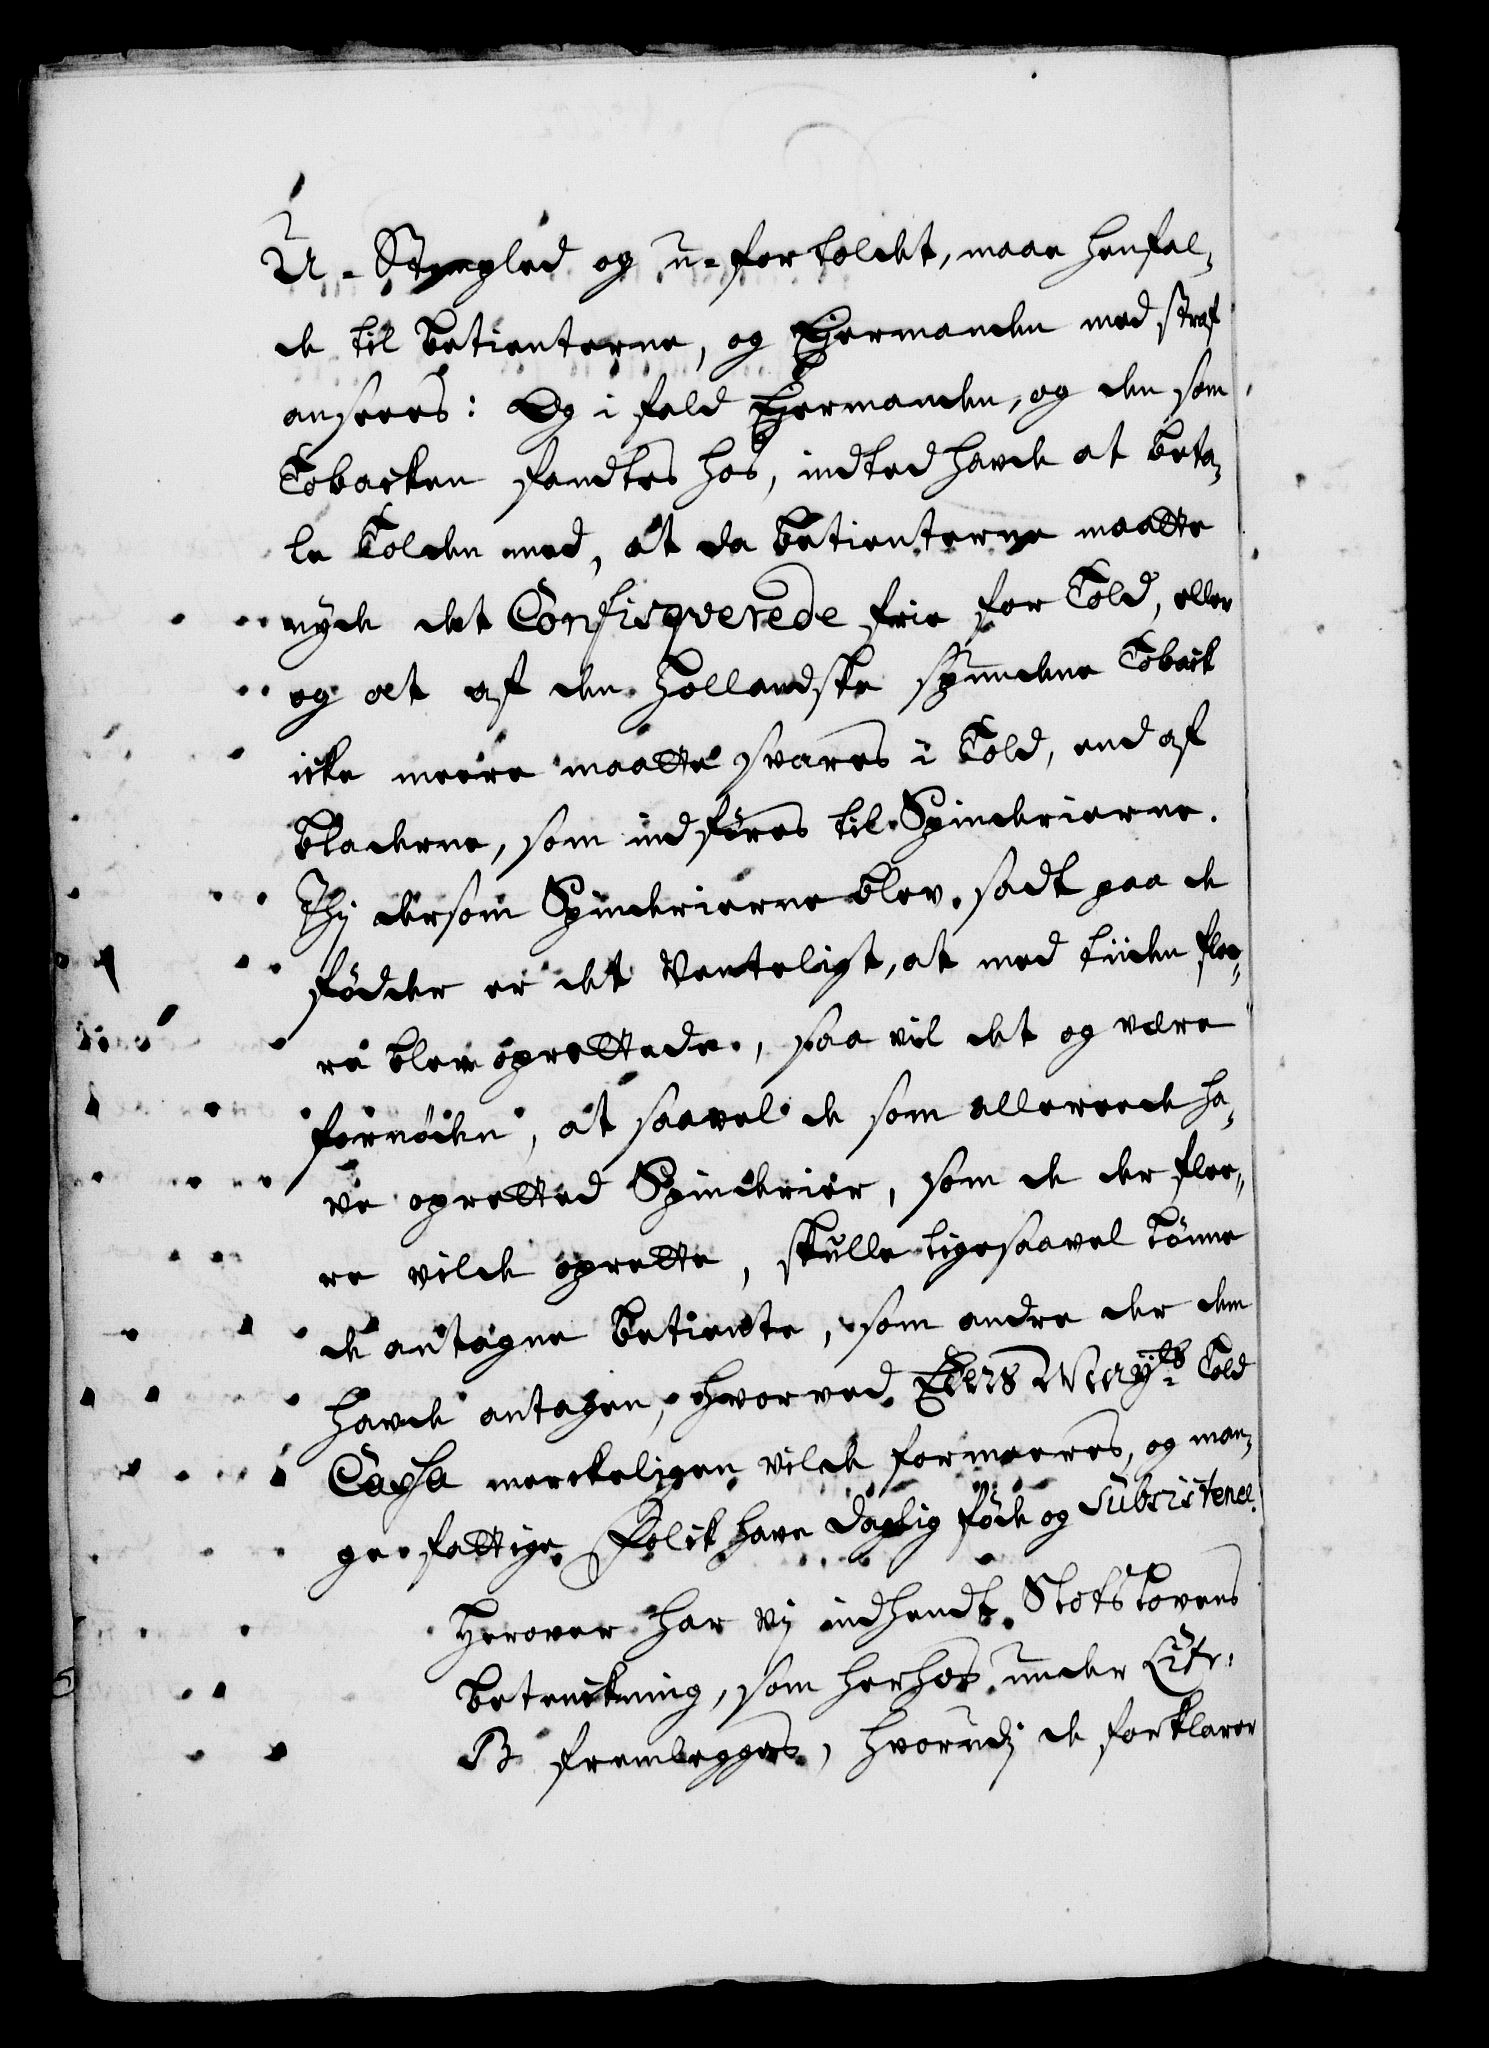 U-Stempled og u-fortoldet, maae henfal,
de til betienterne, og Ejermanden med straf
ansees: Og i fald Ejermanden, og den som
Tobacken fandtes hos, indted havde at beta,
le Tolden med, at da betienterne maatte
nyde det Confisqverede frie for Told, eller
og at af den Hollandske spundene Toback
icke meere maatte svares i Told, end af
bladerne, som indføres til Spinderierne.
Thj dersom Spinderierne blev sadt paa de
fødder er det Venteligt, at med tiiden flee,
re blev oprettede, saa vil det og være
fornøden, at saavel de som allereede ha,
ve opretted Spinderier, som de der flee,
re vilde oprette, skulle ligesaavel lønne
de antagne betiente, som andre der dem
havde antagen, hvorved Eders Mayts Told
Cassa merckeligen vilde formeeres, og man,
ge fattige Folck have daglig føde og Subsistence.
Herover har vj indhendt Slotslovens
betenckning, som herhos under Litr.
B fremlegges, hvorudj de forklarer